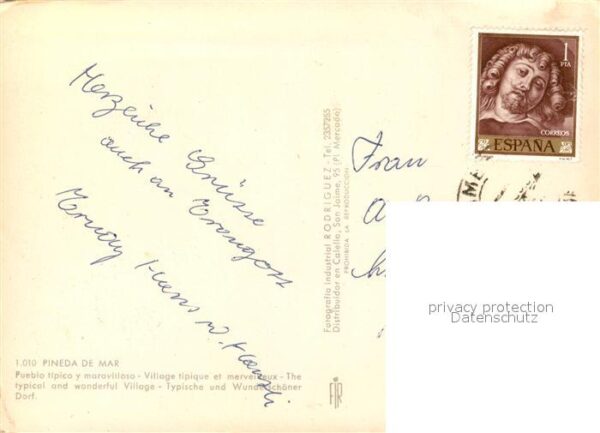 Herzliche Grüsse
auch an
Trudy Hans u.
Frau
A
1
PTA
CORREOS
ESPAÑA
Fotografía industrial RODRIGUEZ - Tel. 2357255
Distribuidor en Calella, San Jaime, 95 (Pl. Mercado)
PROHIBIDA LA REPRODUCCION
privacy protection
Datenschutz
1.010 PINEDA DE MAR
Pueblo típico y maravilloso - Village tipique et merveilleux - The
typical and wonderful Village - Typische und Wunderschöner
Dorf.